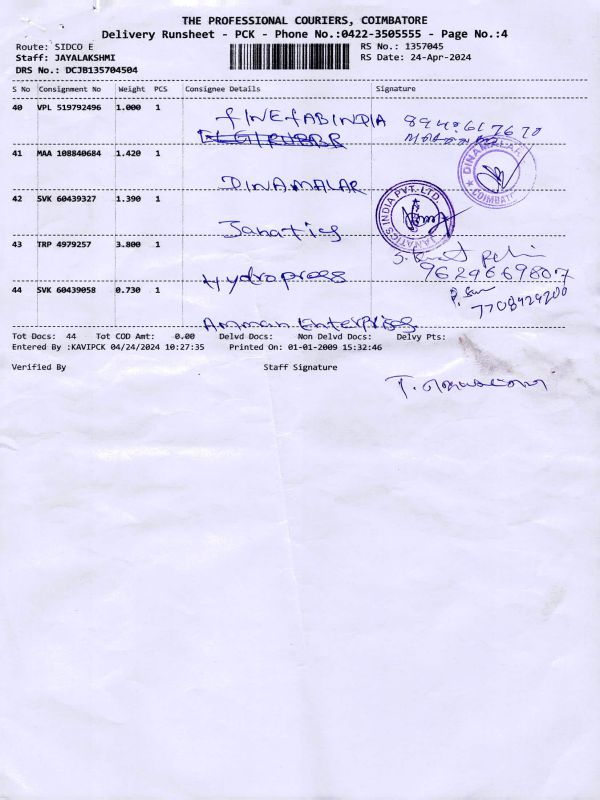 THE PROFESSIONAL COURIERS, COIMBATORE
Delivery Runsheet - PCK - Phone No.:0422-3505555 - Page No.:4
Route: SIDCO E RS No.: 1357045
Staff: JAYALAKSHMI RS Date: 24-Apr-2024
DRS No.: DCJB135704504
S No Consignment No Weight PCS Consignee Details Signature
40 VPL 519792496 1.000 1 FINEFABINDIA
41 MAA 108840684 1.420 1 DINAMALAR
DINAMALAR
COIMBATORE
42 SVK 60439327 1.390 1 Janatics
JANATICS INDIA PVT. LTD.
43 TRP 4979257 3.800 1 Hydropress 9629669807
44 SVK 60439058 0.730 1 Amman Enterprises 7708424200
Tot Docs: 44 Tot COD Amt: 0.00 Delvd Docs: Non Delvd Docs: Delvy Pts:
Entered By :KAVIPCK 04/24/2024 10:27:35 Printed On: 01-01-2009 15:32:46
Verified By Staff Signature